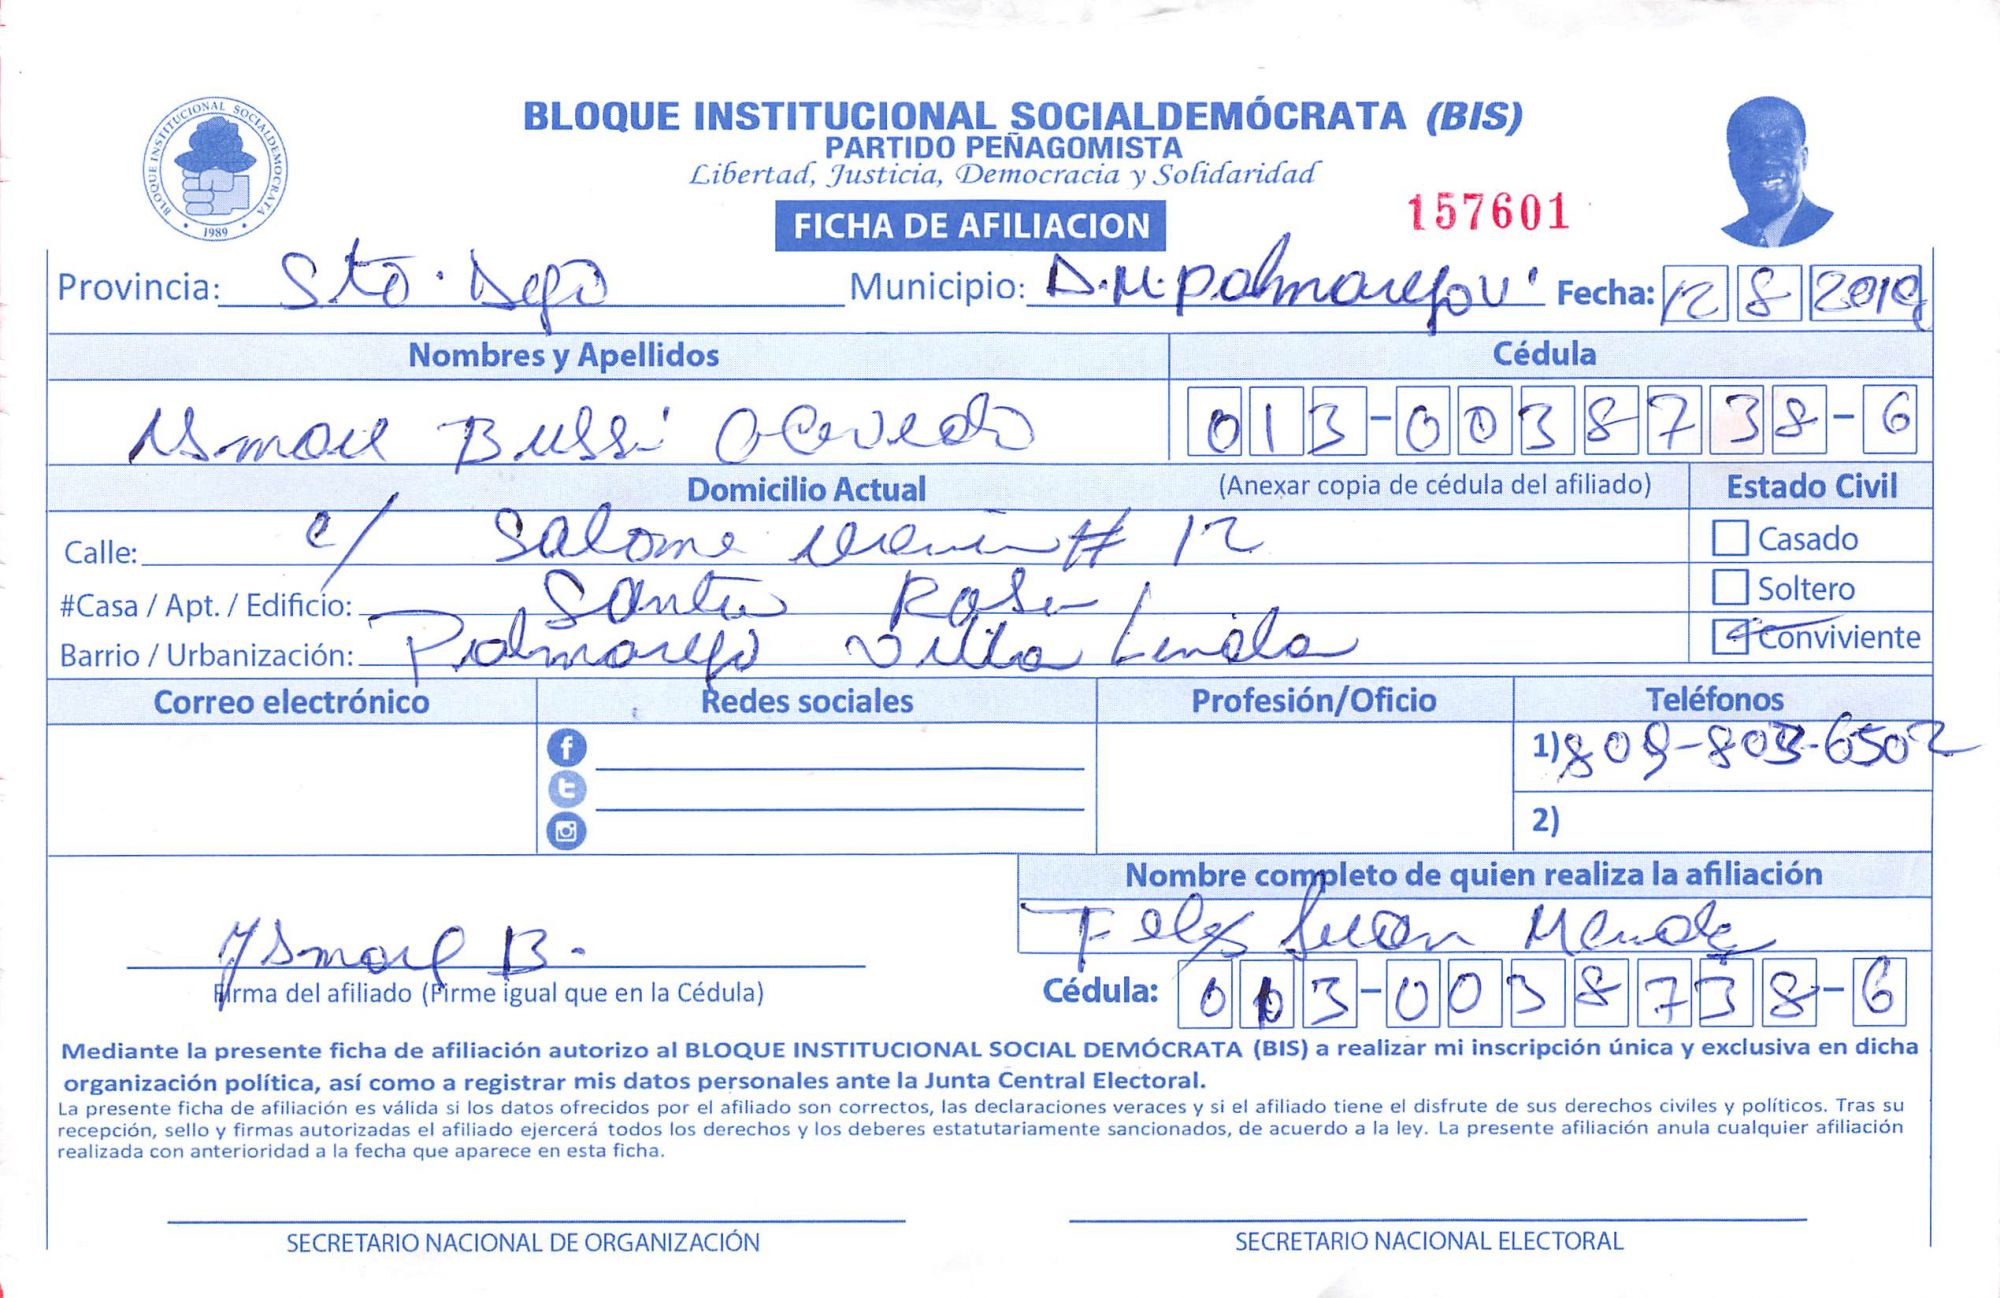 BLOQUE INSTITUCIONAL SOCIALDEMOCRATA
1989
BLOQUE INSTITUCIONAL SOCIALDEMÓCRATA (BIS)
PARTIDO PEÑAGOMISTA
Libertad, Justicia, Democracia y Solidaridad
157601
FICHA DE AFILIACION
Provincia: Sto. Dgo Municipio: D.M. Palmarejo V. Fecha: 12 8 2019
Nombres y Apellidos Cédula
Ismael Bussi Acevedo 013-0038738-6
Domicilio Actual (Anexar copia de cédula del afiliado) Estado Civil
Calle: c/ Salome # 12 Casado
#Casa / Apt. / Edificio: Santa Rosa Soltero
Barrio / Urbanización: Palmarejo Villa Linda Conviviente
Correo electrónico Redes sociales Profesión/Oficio Teléfonos
1) 809-803-6502
2)
Nombre completo de quien realiza la afiliación
Ismael B. Juan
Firma del afiliado (Firme igual que en la Cédula) Cédula: 013-0038738-6
Mediante la presente ficha de afiliación autorizo al BLOQUE INSTITUCIONAL SOCIAL DEMÓCRATA (BIS) a realizar mi inscripción única y exclusiva en dicha
organización política, así como a registrar mis datos personales ante la Junta Central Electoral.
La presente ficha de afiliación es válida si los datos ofrecidos por el afiliado son correctos, las declaraciones veraces y si el afiliado tiene el disfrute de sus derechos civiles y políticos. Tras su
recepción, sello y firmas autorizadas el afiliado ejercerá todos los derechos y los deberes estatutariamente sancionados, de acuerdo a la ley. La presente afiliación anula cualquier afiliación
realizada con anterioridad a la fecha que aparece en esta ficha.
SECRETARIO NACIONAL DE ORGANIZACIÓN SECRETARIO NACIONAL ELECTORAL